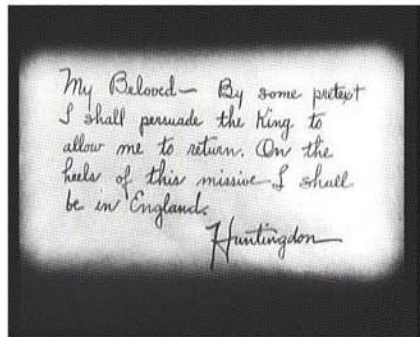 My Beloved— By some pretext
I shall persuade the King to
allow me to return. On the
heels of this missive I shall
be in England.
Huntingdon